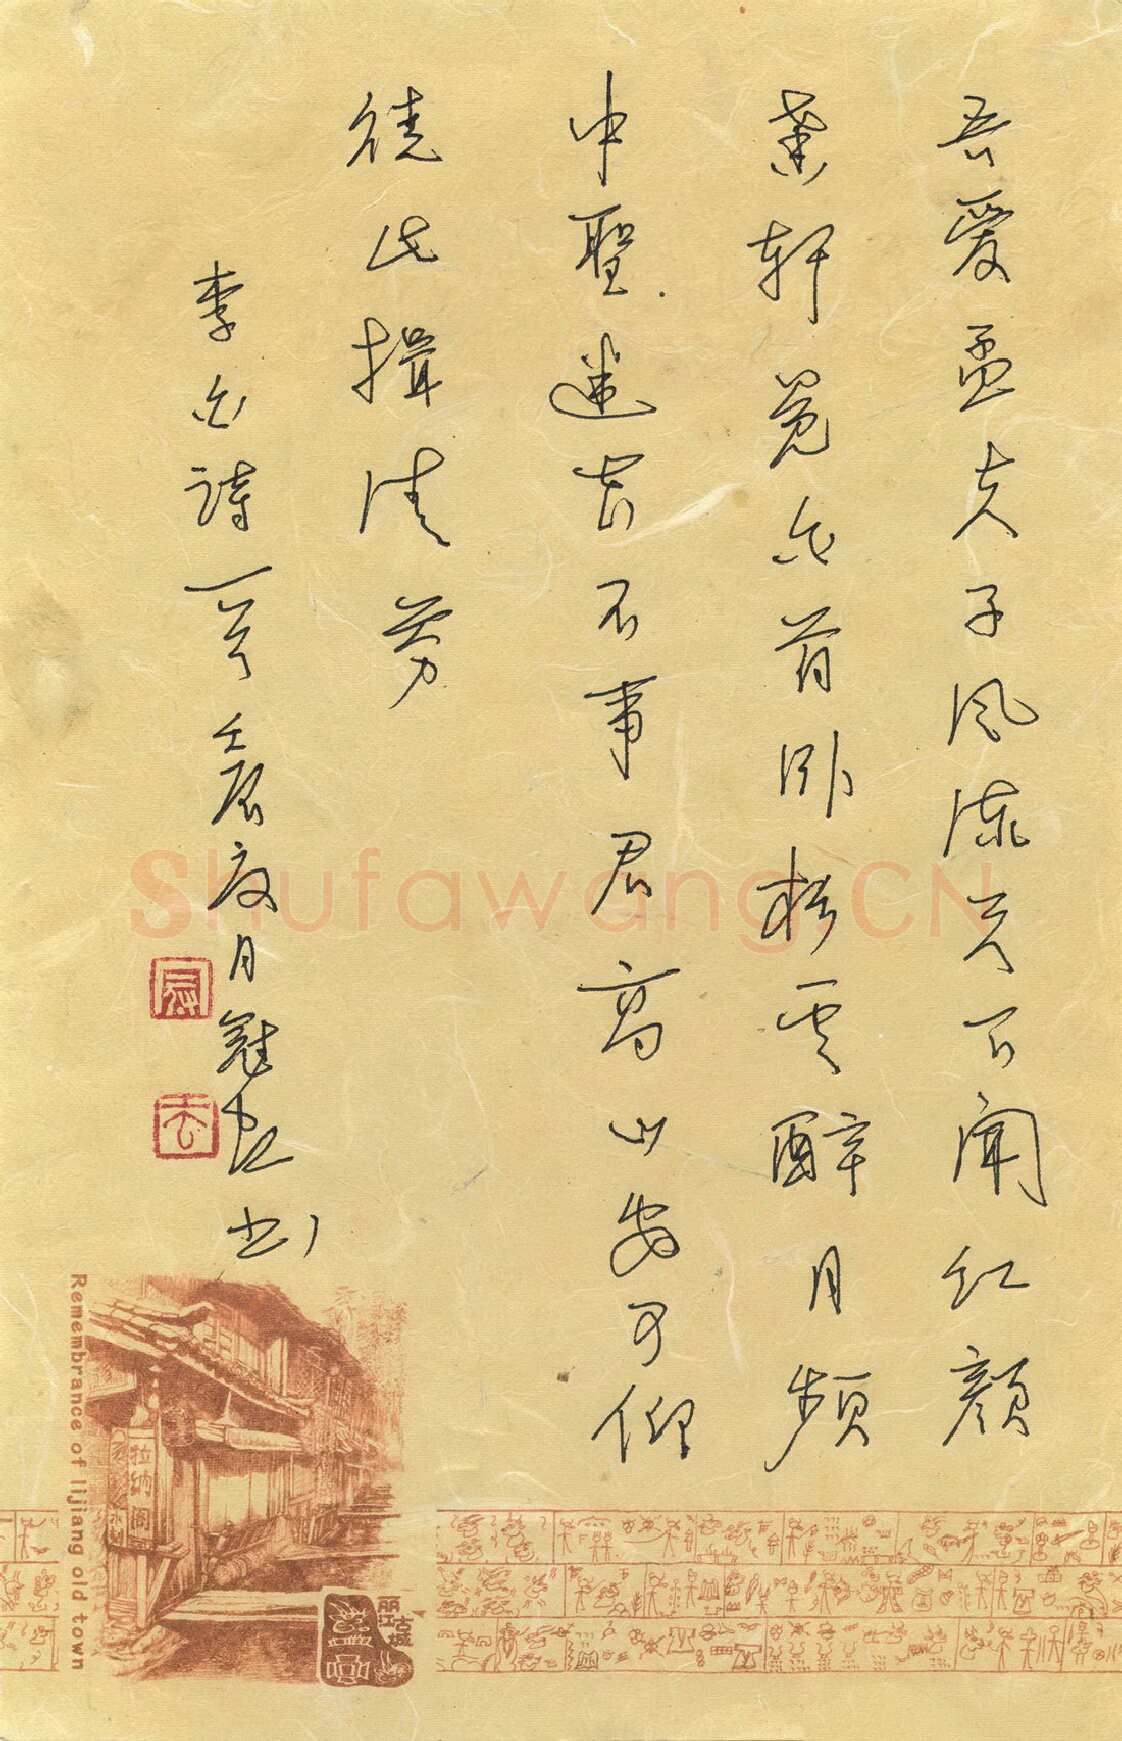 吾爱孟夫子风流天下闻红颜
棄轩冕白首卧松云醉月频
中聖迷花不事君高山安可仰
徒此揖清芬
李白诗一首壬辰夏月冠书
Shufawang.CN
Remembrance of lijiang old town
拉纳阁
丽江古城